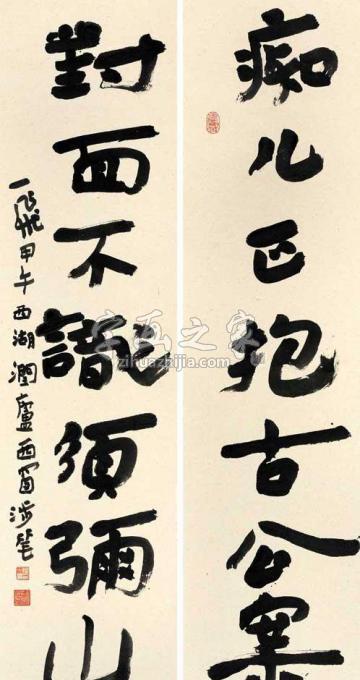 痴儿正抱古公案
對面不識須彌山
一飛甲午西湖潤廬西窗涉筆
字画之家
zihuazhijia.com